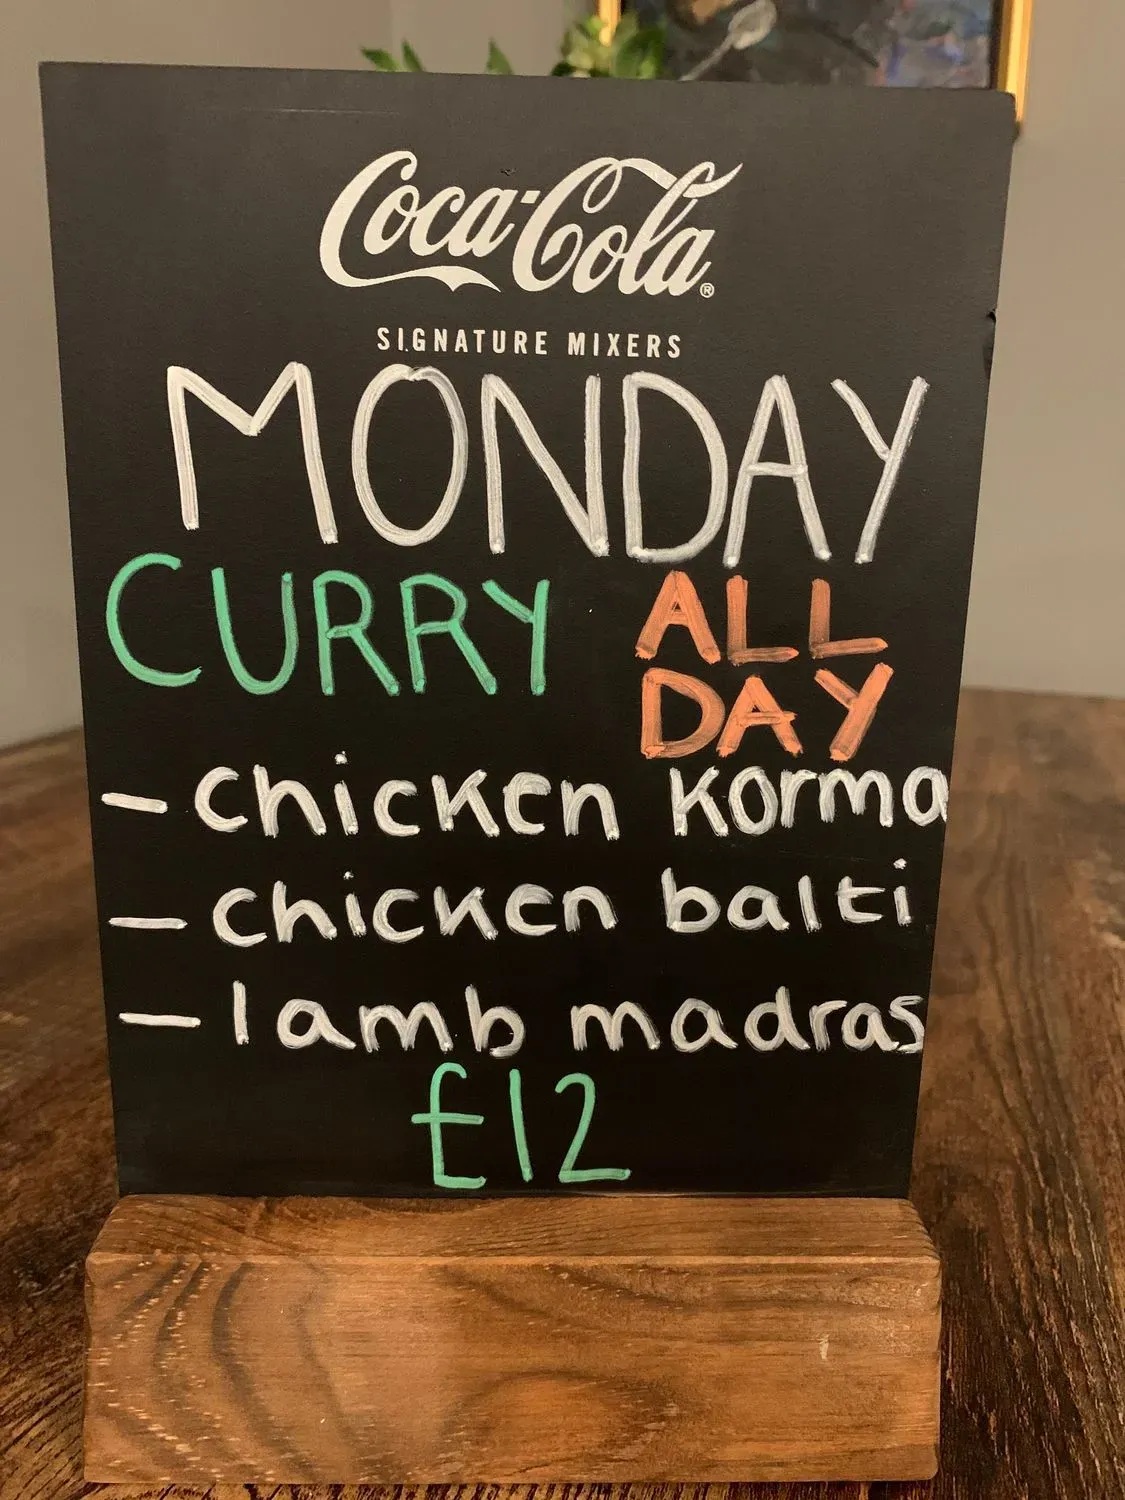 Coca-Cola®
SIGNATURE MIXERS
MONDAY
CURRY
ALL
DAY
- chicken korma
- chicken balti
- lamb madras
£12